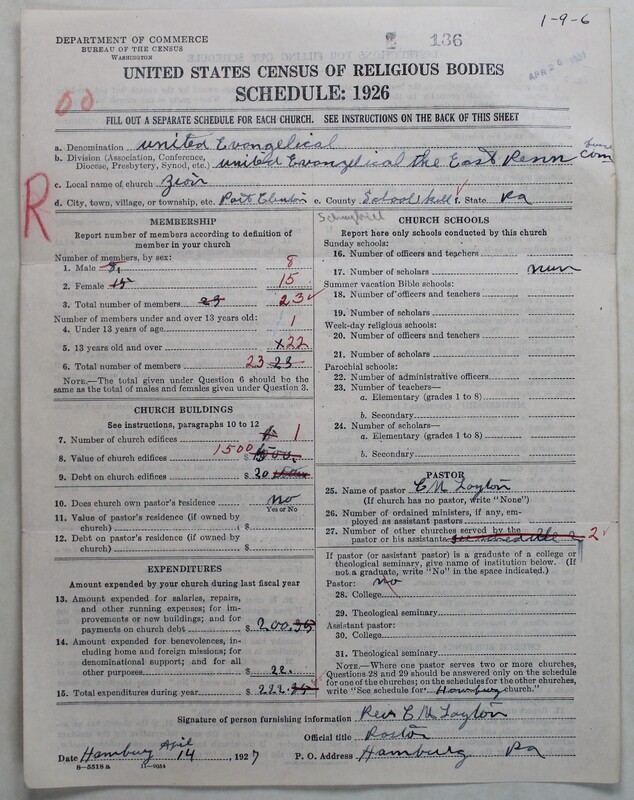 1-9-6
DEPARTMENT OF COMMERCE
BUREAU OF THE CENSUS
WASHINGTON
136
UNITED STATES CENSUS OF RELIGIOUS BODIES
SCHEDULE: 1926
00
FILL OUT A SEPARATE SCHEDULE FOR EACH CHURCH. SEE INSTRUCTIONS ON THE BACK OF THIS SHEET
a. Denomination united Evangelical
b. Division (Association, Conference, Diocese, Presbytery, Synod, etc.) united Evangelical the East Penn
c. Local name of church Zion
d. City, town, village, or township, etc. Port Clinton e. County School'kill f. State Pa
Schuylkill
R
MEMBERSHIP
Report number of members according to definition of member in your church
Number of members, by sex:
1. Male 8 8
2. Female 15 15
3. Total number of members 23 23
Number of members under and over 13 years old:
4. Under 13 years of age 1
5. 13 years old and over x22
6. Total number of members 23 23
NOTE.—The total given under Question 6 should be the same as the total of males and females given under Question 3.
CHURCH BUILDINGS
See instructions, paragraphs 10 to 12
7. Number of church edifices 1
8. Value of church edifices 1500 $
9. Debt on church edifices $ 20
10. Does church own pastor's residence no
Yes or No
11. Value of pastor's residence (if owned by church) $
12. Debt on pastor's residence (if owned by church) $
EXPENDITURES
Amount expended by your church during last fiscal year
13. Amount expended for salaries, repairs, and other running expenses; for improvements or new buildings; and for payments on church debt $ 200.35
14. Amount expended for benevolences, including home and foreign missions; for denominational support; and for all other purposes $ 22.
15. Total expenditures during year $ 222.35
CHURCH SCHOOLS
Report here only schools conducted by this church
Sunday schools:
16. Number of officers and teachers
17. Number of scholars
Summer vacation Bible schools:
18. Number of officers and teachers
19. Number of scholars
Week-day religious schools:
20. Number of officers and teachers
21. Number of scholars
Parochial schools:
22. Number of administrative officers
23. Number of teachers—
a. Elementary (grades 1 to 8)
b. Secondary
24. Number of scholars—
a. Elementary (grades 1 to 8)
b. Secondary
PASTOR
25. Name of pastor C M Layton
(If church has no pastor, write "None")
26. Number of ordained ministers, if any, employed as assistant pastors
27. Number of other churches served by the pastor or his assistants 2
If pastor (or assistant pastor) is a graduate of a college or theological seminary, give name of institution below. (If not a graduate, write "No" in the space indicated.)
Pastor: no
28. College
29. Theological seminary
Assistant pastor:
30. College
31. Theological seminary
NOTE.—Where one pastor serves two or more churches, Questions 28 and 29 should be answered only on the schedule for one of the churches; on the schedules for the other churches, write "See schedule for Hamburg church."
Signature of person furnishing information Rev C M Layton
Official title Pastor
Date Hamburg April 14, 1927 P. O. Address Hamburg Pa
8-5518 a 11-9054